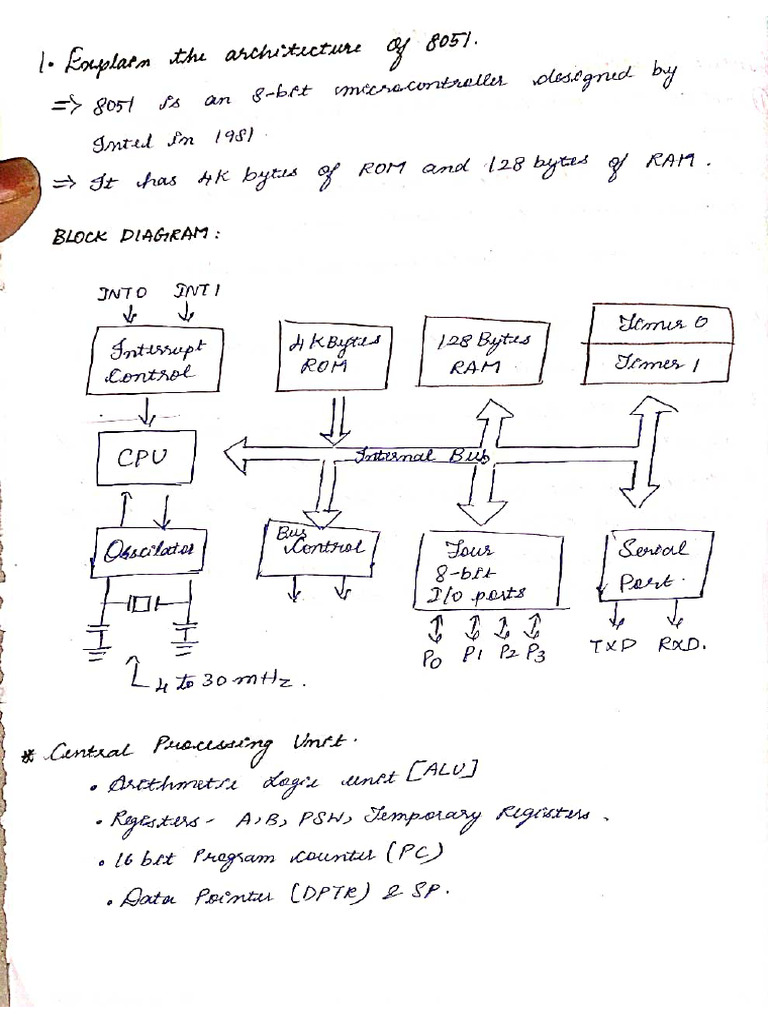 1. Explain the architecture of 8051.
=> 8051 is an 8-bit microcontroller designed by
Intel in 1981.
=> It has 4K bytes of ROM and 128 bytes of RAM.
BLOCK DIAGRAM:
INT0 INT1
Interrupt
Control
4K Bytes
ROM
128 Bytes
RAM
Timer 0
Timer 1
CPU
Internal Bus
Oscilator
Bus
Control
Four
8-bit
I/O ports
Serial
Port.
P0 P1 P2 P3
TXD RXD.
4 to 30 mHz.
* Central Processing Unit.
• Arithmetic Logic unit [ALU]
• Registers - A, B, PSW, Temporary Registers.
• 16 bit Program Counter (PC)
• Data Pointer (DPTR) & SP.